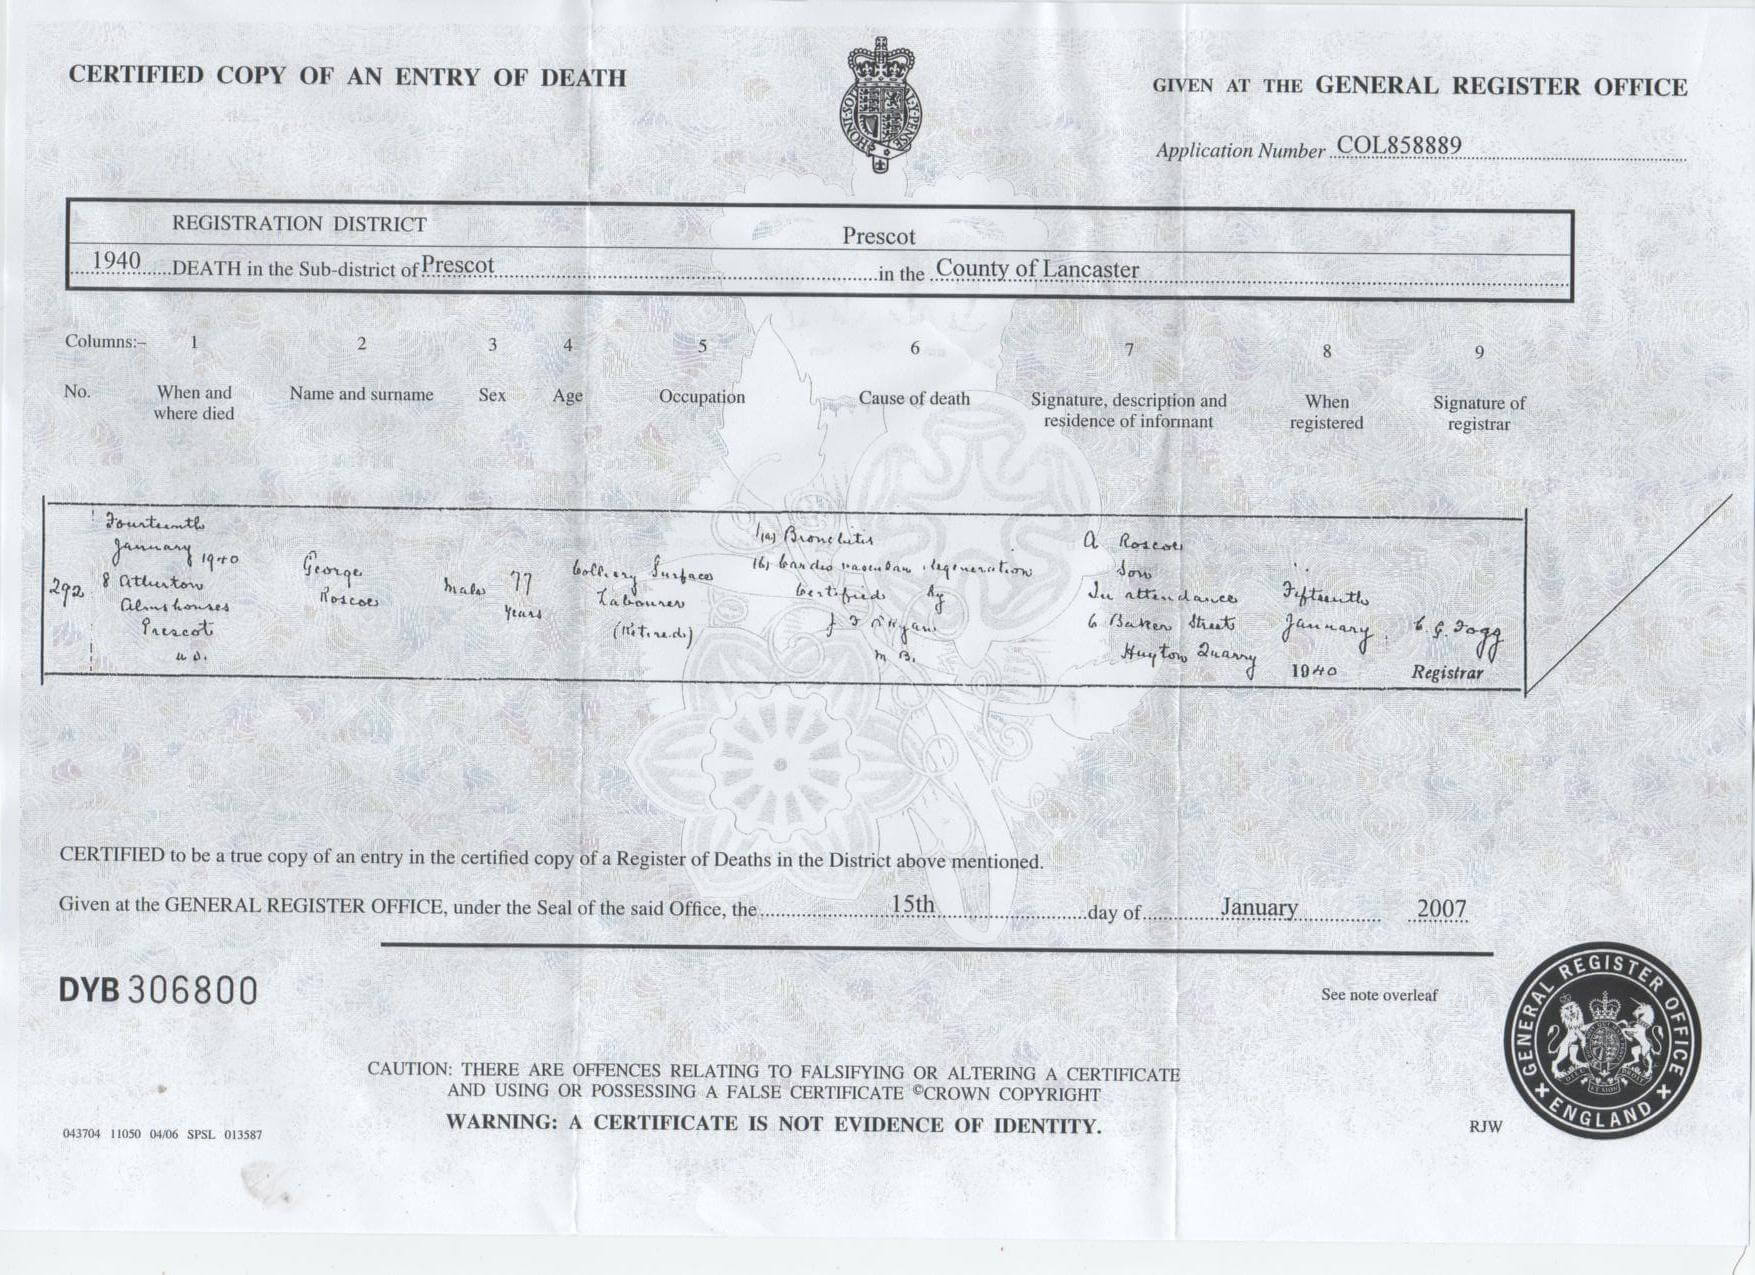 CERTIFIED COPY OF AN ENTRY OF DEATH
GIVEN AT THE GENERAL REGISTER OFFICE
Application Number COL858889
REGISTRATION DISTRICT
Prescot
1940 DEATH in the Sub-district of Prescot in the County of Lancaster
Columns:- 1 2 3 4 5 6 7 8 9
No.
When and
where died
Name and surname
Sex
Age
Occupation
Cause of death
Signature, description and
residence of informant
When
registered
Signature of
registrar
292
Fourteenth
January 1940
8 Atherton
Almshouses
Prescot
U.D.
George
Roscoe
Male
77
years
Colliery Surface
Labourer
(Retired)
1(a) Bronchitis
(b) Cardio vascular degeneration
Certified by
J
M B.
A Roscoe
Son
In attendance
6 Baker Street
Huyton Quarry
Fifteenth
January
1940
C. G. Fogg
Registrar
CERTIFIED to be a true copy of an entry in the certified copy of a Register of Deaths in the District above mentioned.
Given at the GENERAL REGISTER OFFICE, under the Seal of the said Office, the 15th day of January 2007
DYB 306800
See note overleaf
GENERAL REGISTER OFFICE
ENGLAND
CAUTION: THERE ARE OFFENCES RELATING TO FALSIFYING OR ALTERING A CERTIFICATE
AND USING OR POSSESSING A FALSE CERTIFICATE ©CROWN COPYRIGHT
WARNING: A CERTIFICATE IS NOT EVIDENCE OF IDENTITY.
043704 11050 04/06 SPSL 013587
RJW